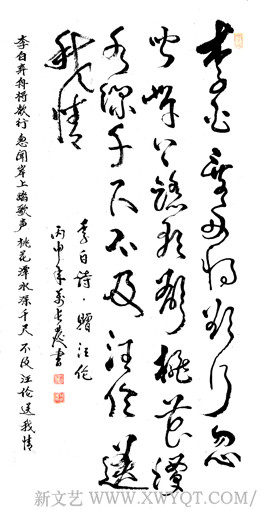 李白乘舟将欲行忽
闻岸上踏歌声桃花潭
水深千尺不及汪伦送
我情
李白诗·赠汪伦
丙申年 书
李白乘舟将欲行 忽闻岸上踏歌声 桃花潭水深千尺 不及汪伦送我情
新文艺 WWW.XWYQT.COM/